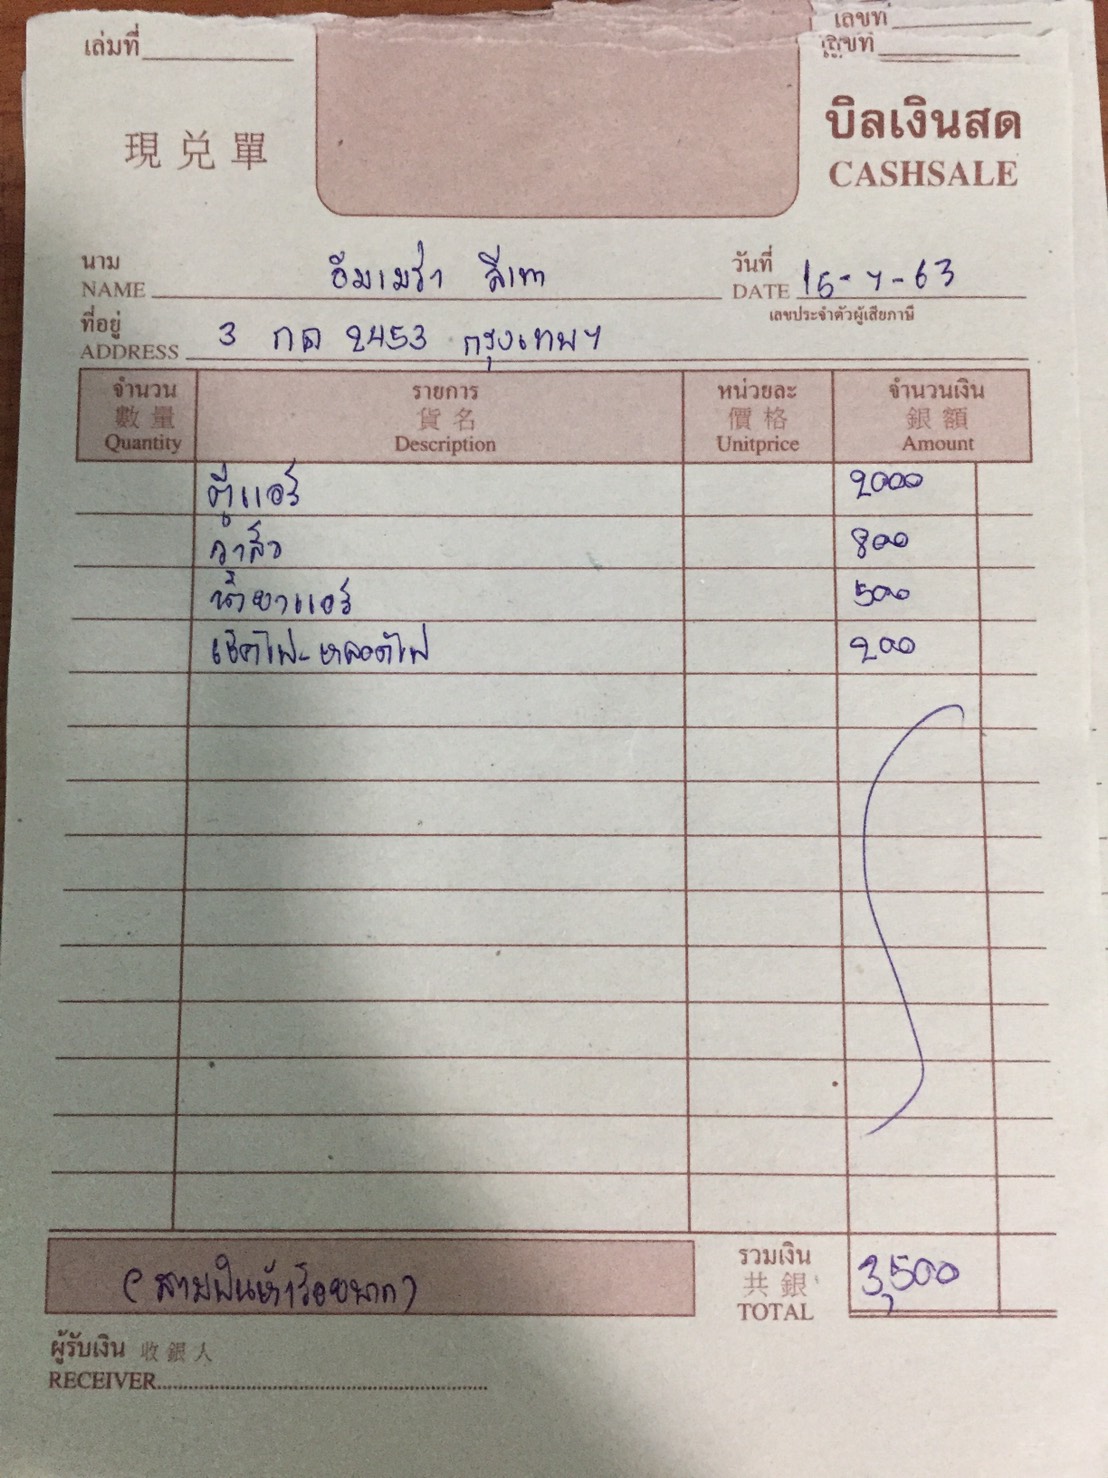 เล่มที่
เลขที่
เลขที่
現兑單
บิลเงินสด
CASHSALE
นาม
NAME อัมเมร่า สีเทา
วันที่
DATE 16-7-63
เลขประจำตัวผู้เสียภาษี
ที่อยู่
ADDRESS 3 กด 2453 กรุงเทพฯ
จำนวน รายการ หน่วยละ จำนวนเงิน
數量 貨名 價格 銀額
Quantity Description Unitprice Amount
ตู้แอร์ 2000
วาล์ว 800
น้ำยาแอร์ 500
เช็คไฟ-หลอดไฟ 200
(สามพันห้าร้อยบาท)
รวมเงิน
共銀
TOTAL 3,500
ผู้รับเงิน 收銀人
RECEIVER